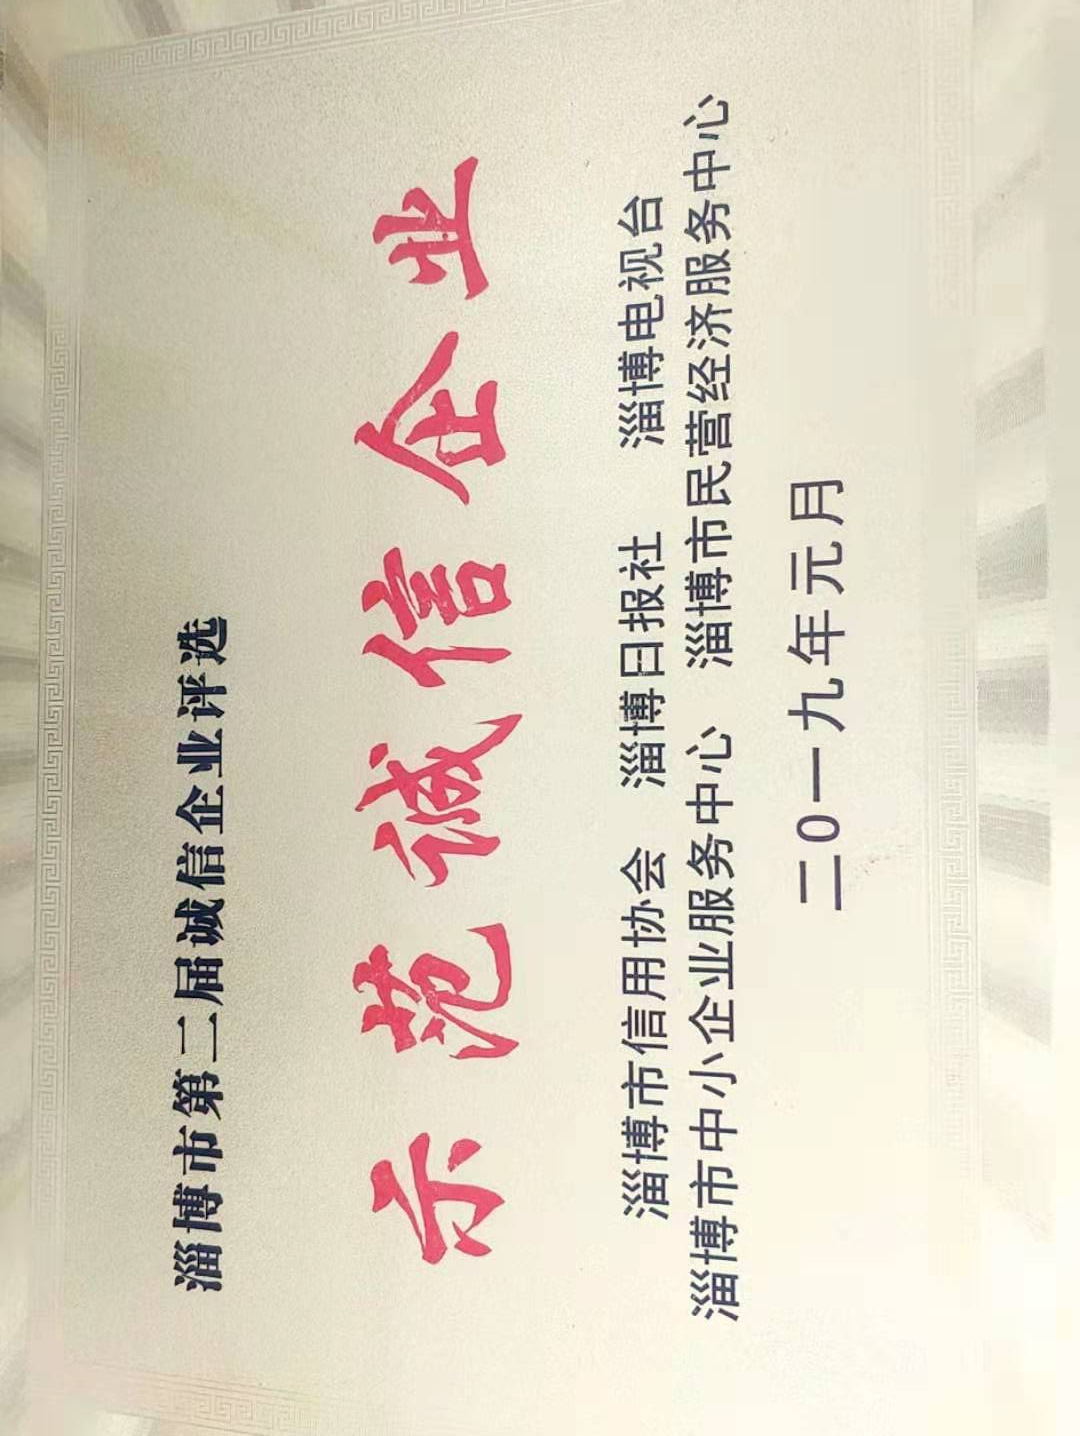 淄博市第二届诚信企业评选
示范诚信企业
淄博市信用协会 淄博日报社 淄博电视台
淄博市中小企业服务中心 淄博市民营经济服务中心
二0一九年元月